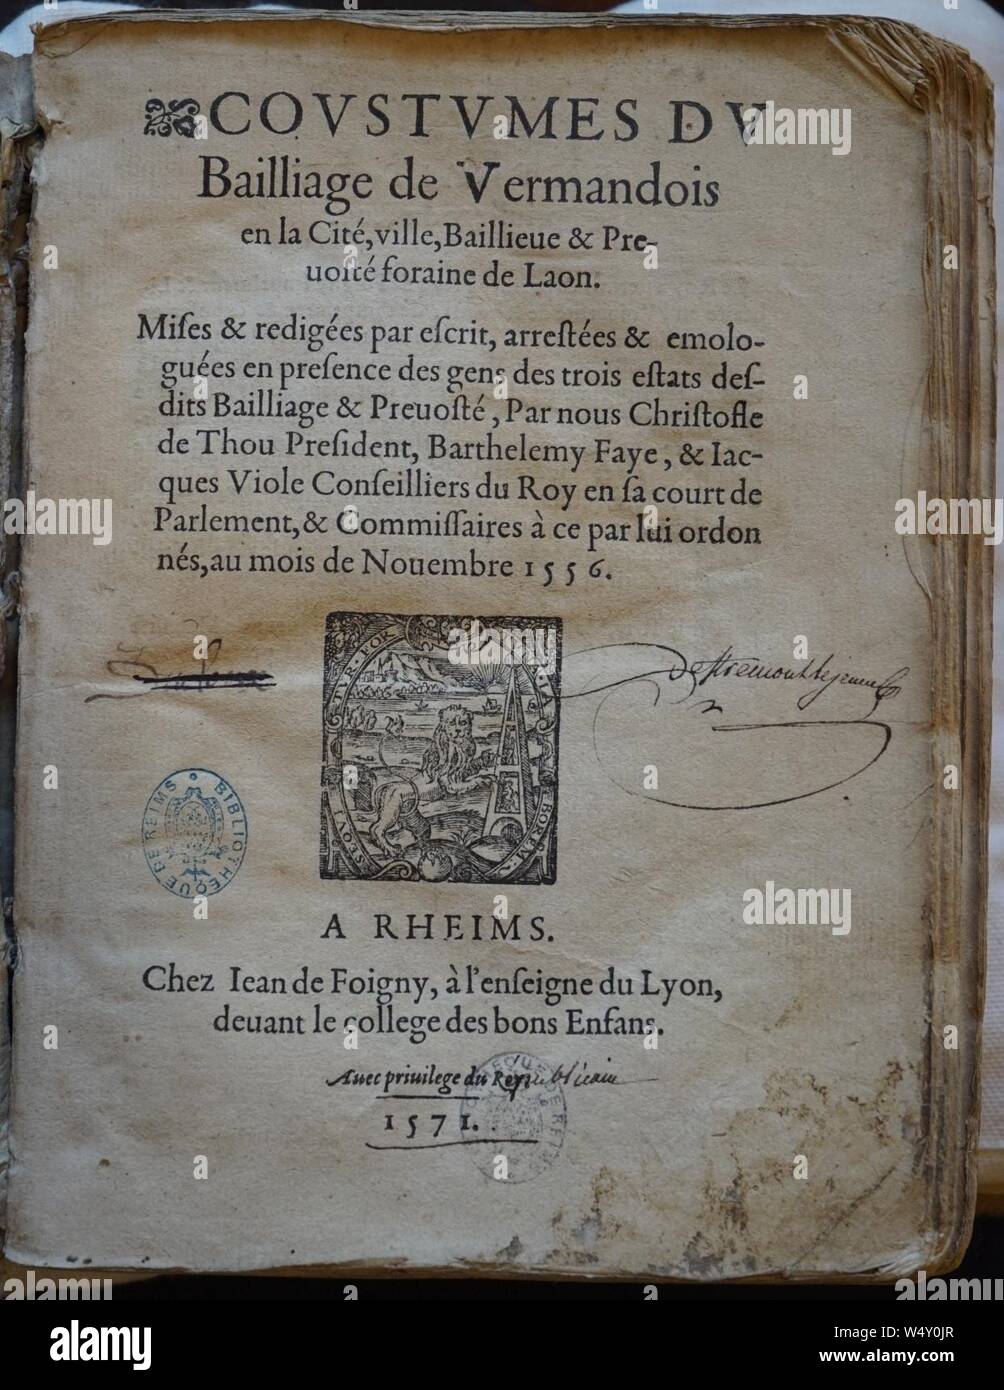 COVSTVMES DV
Bailliage de Vermandois
en la Cité, ville, Baillieue & Pre-
uosté foraine de Laon.
Miſes & redigées par eſcrit, arreſtées & emolo-
guées en preſence des gens des trois eſtats deſ-
dits Bailliage & Preuoſté, Par nous Chriſtofle
de Thou Preſident, Barthelemy Faye, & Iac-
ques Viole Conſeilliers du Roy en ſa court de
Parlement, & Commiſſaires à ce par lui ordon
nés, au mois de Nouembre 1556.
BIBLIOTHEQUE DE REIMS
A RHEIMS.
Chez Iean de Foigny, à l'enſeigne du Lyon,
deuant le college des bons Enfans.
Auec priuilege du Roy
1571.
alamy
Image ID: W4Y0JR
www.alamy.com